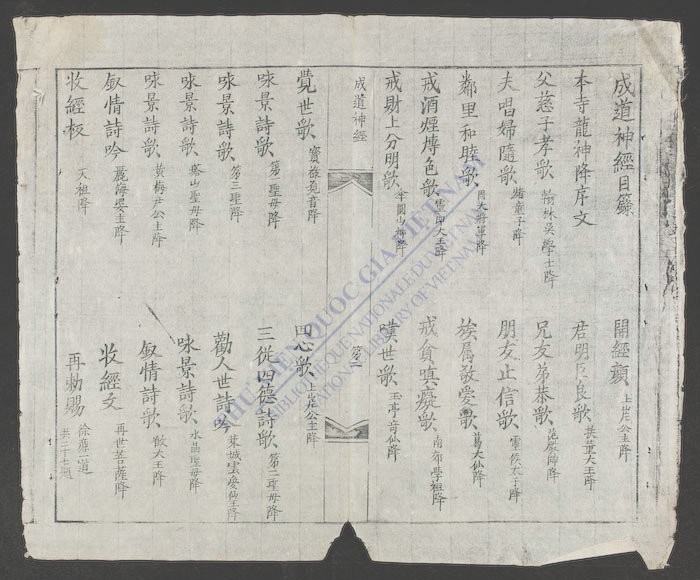 成道神經目籙
本寺龍神降序文 開經願 上岸公主降
父慈子孝歌 翰林吳學士降 君明臣良歌 大王降
夫唱婦隨歌 童子降 兄友弟恭歌
鄰里和睦歌 大將軍降 朋友止信歌 太子降
戒酒煙博色歌 大王降 族屬敬愛歌 葛大仙降
戒財上分明歌 李國山神降 戒貪嗔癡歌 南郊學祖降
嘆世歌 玉亭音仙降
成道神經
覺世歌 觀音降 回心歌 上岸公主降
咏景詩歌 第一聖母降 三從四德詩歌 第二聖母降
咏景詩歌 第三聖母降 勸人世詩吟
咏景詩歌 寨山聖母降 咏景詩歌 水晶聖母降
咏景詩歌 黃梅尹公主降 敘情詩歌 大王降
敘情詩吟 麗海公主降 收經文 再世菩薩降
收經板 天祖降 再勅賜
共三十七題
THƯ VIỆN QUỐC GIA VIỆT NAM
BIBLIOTHEQUE NATIONALE DU VIETNAM
NATIONAL LIBRARY OF VIETNAM